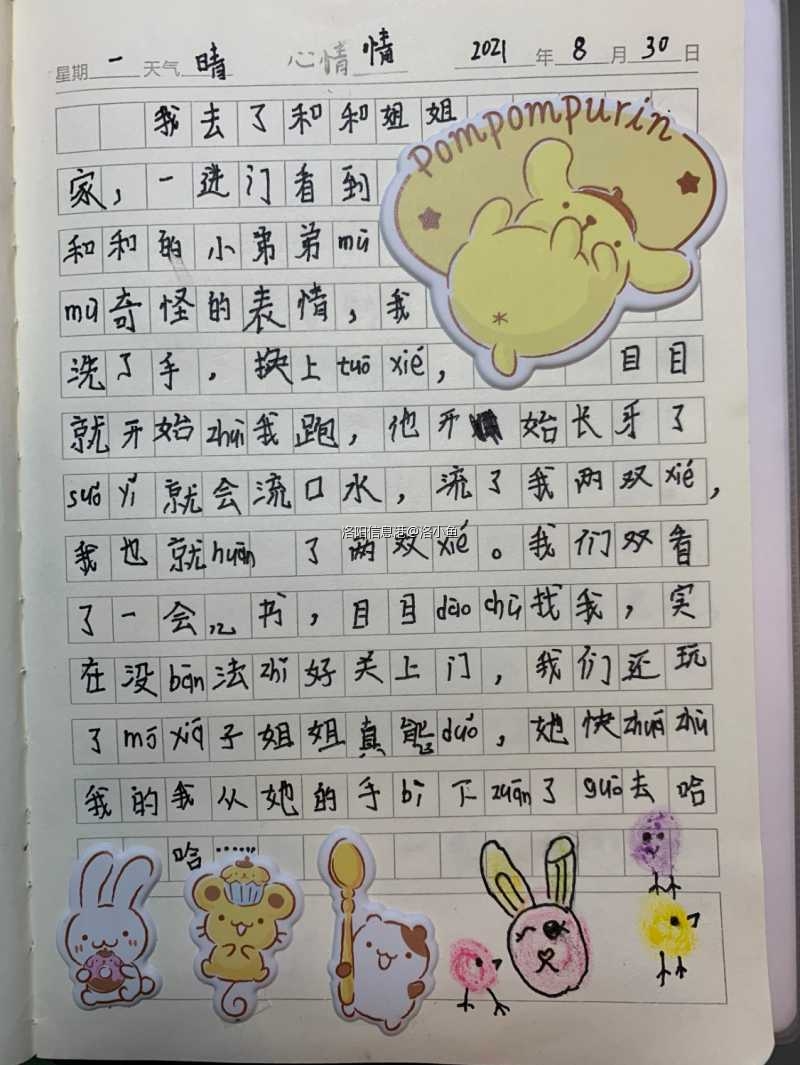 星期 一 天气 晴 心情 情 2021 年 8 月 30 日
我去了和和姐姐
pompompurin
家，一进门看到
和和的小弟弟mū
mū奇怪的表情，我
洗了手，换上tuō xié， 目目
就开始zhuī我跑，他开始长牙了
suǒ yǐ就会流口水，流了我两双xié，
我也就huàn了两双xié。我们双看
洛阳信息港@洛小鱼
了一会儿书，目目dào chù找我，实
在没bàn法zhǐ好关上门，我们还玩
了mō xiā子姐姐真能duǒ，她快zhuā zhù
我的我从她的手bì下zuān了guò去哈
哈……